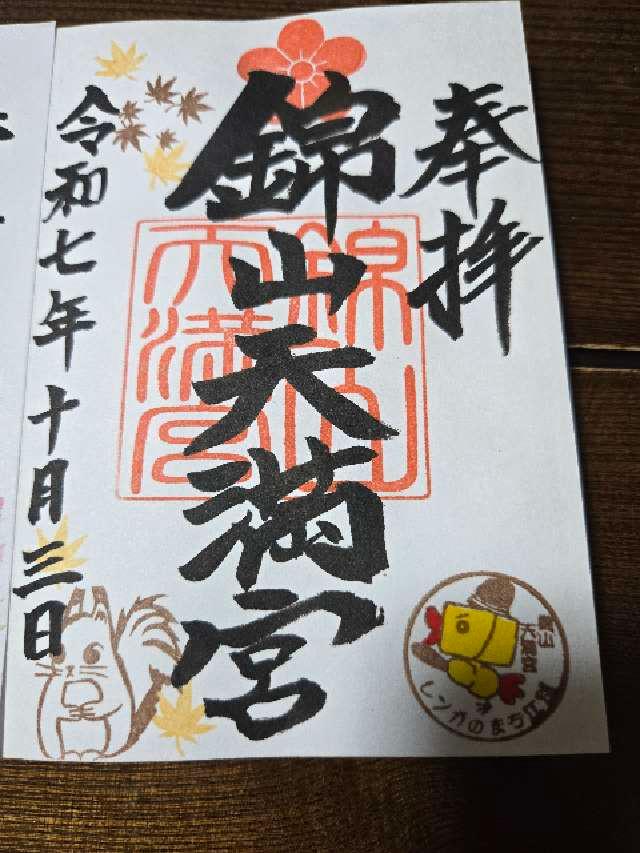 奉拝
錦山天満宮
令和七年十月三日
錦山
天満宮
錦山
天満宮
レンガのまち江別